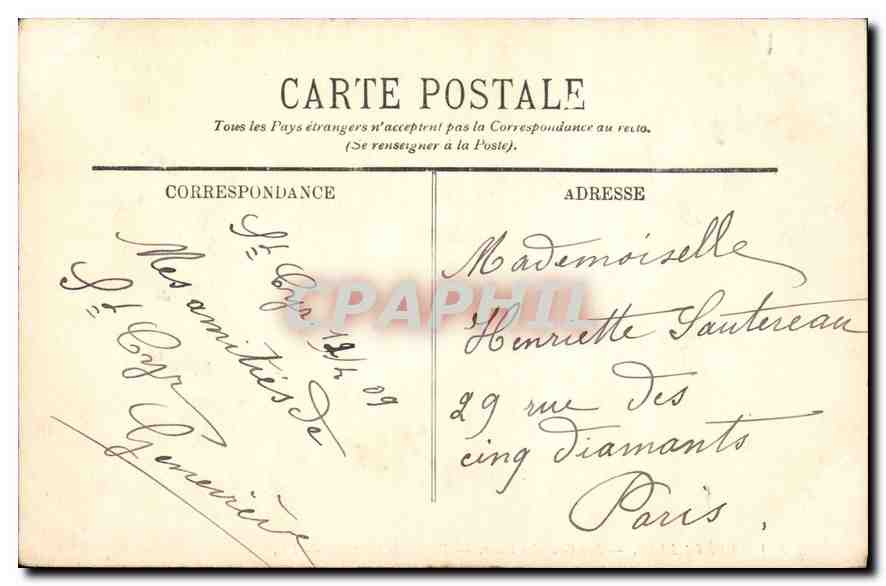 CARTE POSTALE
Tous les Pays étrangers n'acceptent pas la Correspondance au recto.
(Se renseigner à la Poste).
CORRESPONDANCE
St Cyr 12/4 09
Mes amitiés de
St Cyr
Geneviève
ADRESSE
Mademoiselle
Henriette Sautereau
29 rue des
cinq diamants
Paris,
CPAPHIL